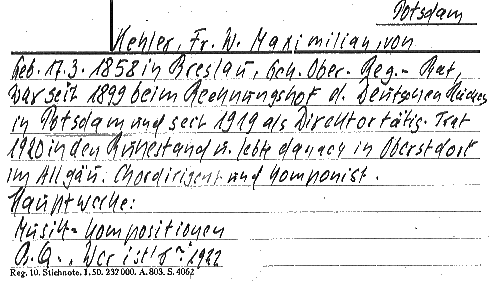 Potsdam
Kehler, Fr. W. Maximilian, von
Geb. 17.3. 1858 in Breslau, Geh. Ober-Reg.-Rat,
war seit 1899 beim Rechnungshof d. Deutschen Reiches
in Potsdam und seit 1919 als Direktor tätig. Trat
1920 in den Ruhestand u. lebte danach in Oberstdorf
im Allgäu. Chordirigent und Komponist.
Hauptwerke:
Musik-Kompositionen
B.Q.. Wer ist's 1922
Reg. 10. Stichnote. 1. 50. 232 000. A. 803. S. 4062